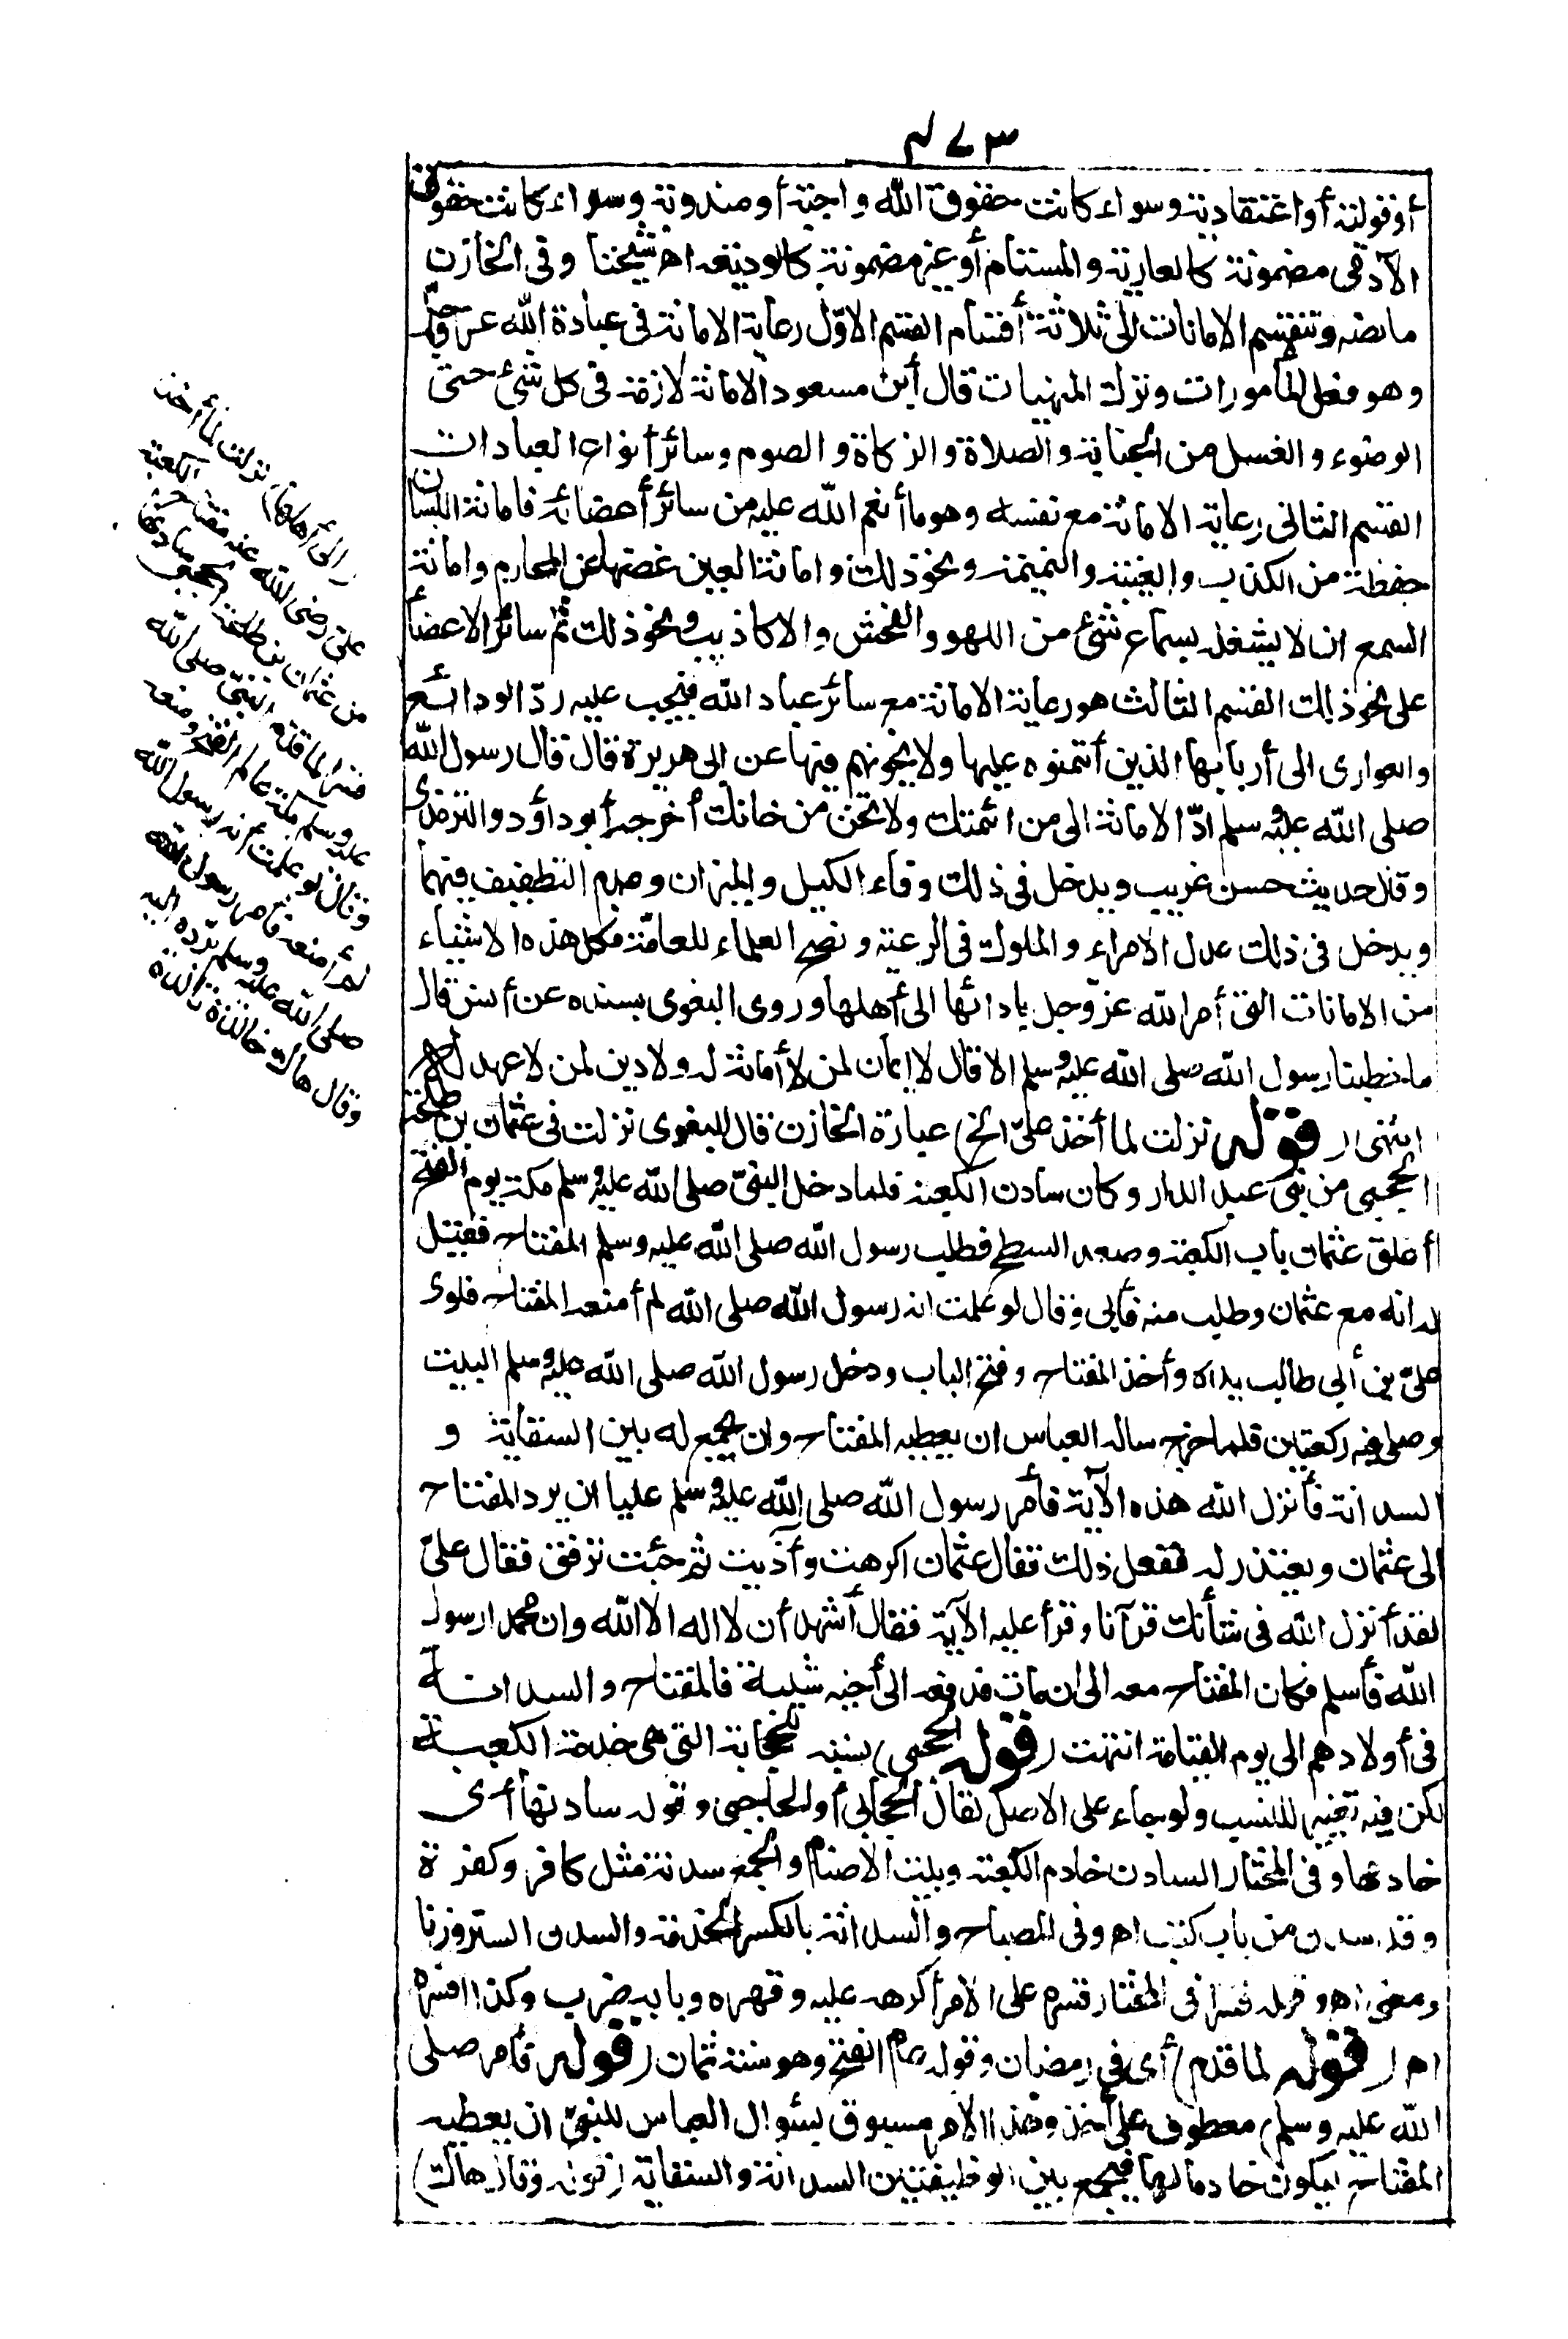 ٤٧٣
أو قولية أو اعتقادية وسواء كانت حقوق الله واجبة أو مندوبة وسواء كانت حقوق
الآدمى مضمونة كالعارية والمستام أو غير مضمونة كالوديعة اه شيخنا وفى الخازن
ما نصه وتنقسم الامانات الى ثلاثة أقسام القسم الاوّل رعاية الامانة فى عبادة الله عزّ وجلّ
وهو فعل المأمورات وترك المنهيات قال أبن مسعود الامانة لازمة فى كل شئ حتى
الوضوء والغسل من الجنابة والصلاة والزكاة والصوم وسائر أنواع العبادات
القسم الثانى رعاية الامانة مع نفسه وهو ما أنعم الله عليه من سائر أعضائه فامانة اللسان
حفظه من الكذب والغيبة والنميمة ونحو ذلك وامانة العين غضها عن المحارم وامانة
السمع ان لا يشغله بسماع شئ من اللهو والفحش والاكاذيب ونحو ذلك ثم سائر الاعضأ
على نحو ذلك القسم الثالث هو رعاية الامانة مع سائر عباد الله فيجب عليه ردّ الودائع
والعوارى الى أربابها الذين أئتمنوه عليها ولا يخونهم فيها عن ابى هريرة قال قال رسول الله
صلى الله عليه وسلم ادّ الامانة الى من ائتمنك ولا تخن من خانك أخرجه أبو داؤد والترمذى
وقال حديث حسن غريب ويدخل فى ذلك وفاء الكيل والميزان وعدم التطفيف فيهما
ويدخل فى ذلك عدل الامراء والملوك فى الرعية ونصح العلماء للعامّة فكل هذه الاشياء
من الامانات التى أمر الله عزّ وجل بادائها الى أهلها وروى البغوى بسنده عن أنس قال
ما خطبنا رسول الله صلى الله عليه وسلم الا قال لا ايمان لمن لا أمانة له ولا دين لمن لا عهد له اه
انتهى (قوله نزلت لما أخذ علىّ الخ) عبارة الخازن قال البغوى نزلت فى عثمان بن طلحة
الحجبى من بنى عبد الدار وكان سادن الكعبة فلما دخل النبىّ صلى الله عليه وسلم مكة يوم الفتح
أغلق عثمان باب الكعبة وصعد السطح فطلب رسول الله صلى الله عليه وسلم المفتاح فقيل
له انه مع عثمان وطلب منه فأبى وقال لو علمت انه رسول الله صلى الله لم أمنعه المفتاح فلوى
علىّ بن أبى طالب يده وأخذ المفتاح وفتح الباب ودخل رسول الله صلى الله عليه وسلم البيت
وصلى فيه ركعتين فلما خرج ساله العباس ان يعطيه المفتاح وان يجمع له بين السقاية و
السدانة فأنزل الله هذه الآية فأمر رسول الله صلى الله عليه وسلم عليا ان يرد المفتاح
الى عثمان ويعتذر له ففعل ذلك فقال عثمان اكرهت وآذيت ثم جئت ترفق فقال علىّ
لقد أنزل الله فى شأنك قرآنا وقرأ عليه الآية فقال أشهد أن لا اله الا الله وان محمدا رسول
الله فأسلم فكان المفتاح معه الى ان مات فدفعه الى أخيه شيبة فالمفتاح والسدانة
فى أولادهم الى يوم القيامة انتهت (قوله الحجبى) نسبة للحجابة التى هى خدمة الكعبة
لكن فيه تغيير للنسب ولو جاء على الاصل لقال الحجابى أو الحاجبى وقوله سادنها أى
خادمها وفى المختار السادن خادم الكعبة وبيت الاصنام والجمع سدنة مثل كافر وكفرة
وقد سدن من باب كتب اه وفى المصباح والسدانة بالكسر الخدمة والسدن الستر وزنا
ومعنى اه وقوله قسرا فى المختار قسره على الامر أكرهه عليه وقهره وبابه ضرب وكذا اقتسره
اه (قوله لما قدم) أى فى رمضان وقوله عام الفتح وهو سنة ثمان (قوله فأمر صلى
الله عليه وسلم) معطوف على أخذ وهذا الامر مسبوق بسؤال العباس للنبىّ ان يعطيه
المفتاح ليكون خادما لها فيجمع بين الوظيفتين السدانة والسقاية (قوله وقال هاك)
(الى أهلها) نزلت لما أخذ
علىّ رضى الله عنه مفتاح الكعبة
من عثمان بن طلحة الحجبى سادنها
قسرا لما قدم النبىّ صلى الله
عليه وسلم مكة عام الفتح ومنعه
وقال لو علمت أنه رسول الله
لم أمنعه فأمر رسول الله
صلى الله عليه وسلم بردّه اليه
وقال هاك خالدة تالدة